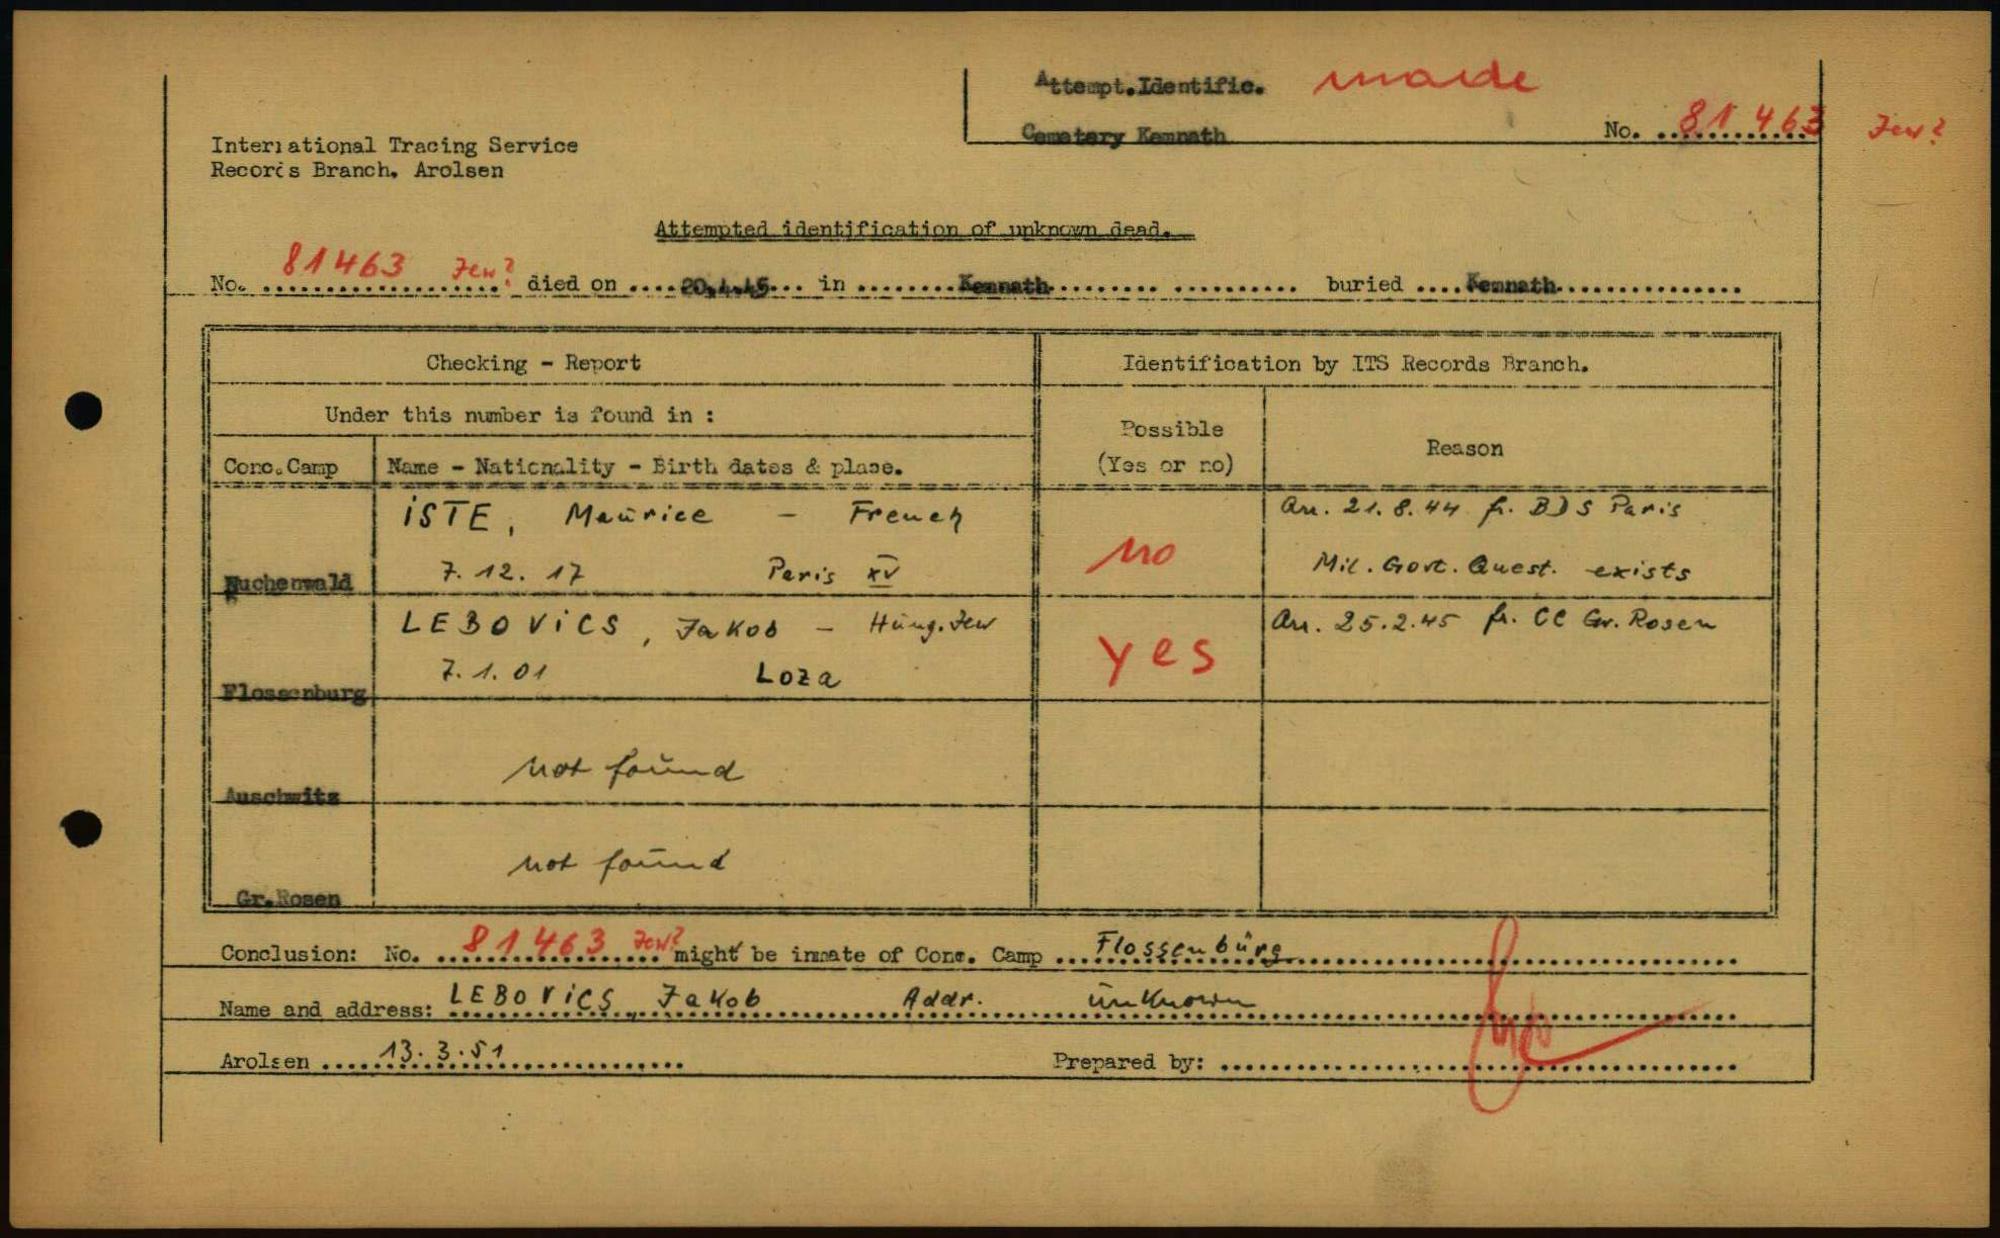 Attempt.Identific. made
Cemetary Kemnath
No. 81463 Jew?
International Tracing Service
Records Branch, Arolsen
Attempted identification of unknown dead.
No. 81463 Jew? died on 20.4.45 in Kemnath buried Kemnath
Checking - Report
Identification by ITS Records Branch.
Under this number is found in :
Possible
(Yes or no)
Reason
Conc.Camp
Name - Nationality - Birth dates & place.
Buchenwald
ISTE, Maurice - French
7.12.17 Paris XV
no
Arr. 21.8.44 fr. BDS Paris
Mil. Govt. Quest. exists
Flossenburg
LEBOVICS, Jakob - Hung.Jew
7.1.01 Loza
yes
Arr. 25.2.45 fr. CC Gr. Rosen
Auschwitz
not found
Gr.Rosen
not found
Conclusion: No. 81463 Jew? might be inmate of Conc. Camp Flossenbürg
Name and address: LEBOVICS, Jakob Addr. unknown
Arolsen 13.3.51
Prepared by: